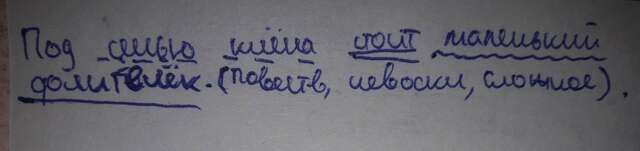 Под сенью клёна стоит маленький
домителёк. (Повеств, невоскл, сложное).